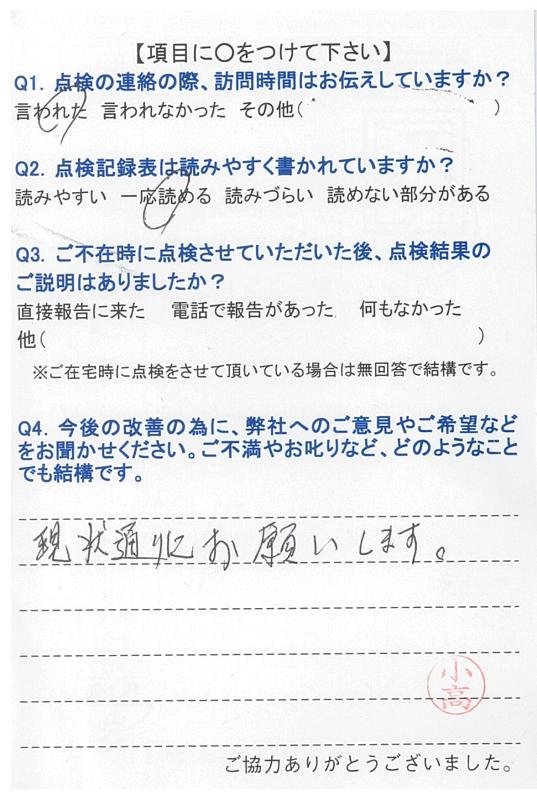 【項目に○をつけて下さい】
Q1. 点検の連絡の際、訪問時間はお伝えしていますか？
言われた 言われなかった その他( )
Q2. 点検記録表は読みやすく書かれていますか？
読みやすい 一応読める 読みづらい 読めない部分がある
Q3. ご不在時に点検させていただいた後、点検結果の
ご説明はありましたか？
直接報告に来た 電話で報告があった 何もなかった
他( )
※ご在宅時に点検をさせて頂いている場合は無回答で結構です。
Q4. 今後の改善の為に、弊社へのご意見やご希望など
をお聞かせください。ご不満やお叱りなど、どのようなこと
でも結構です。
現状通りにお願いします。
小高
ご協力ありがとうございました。